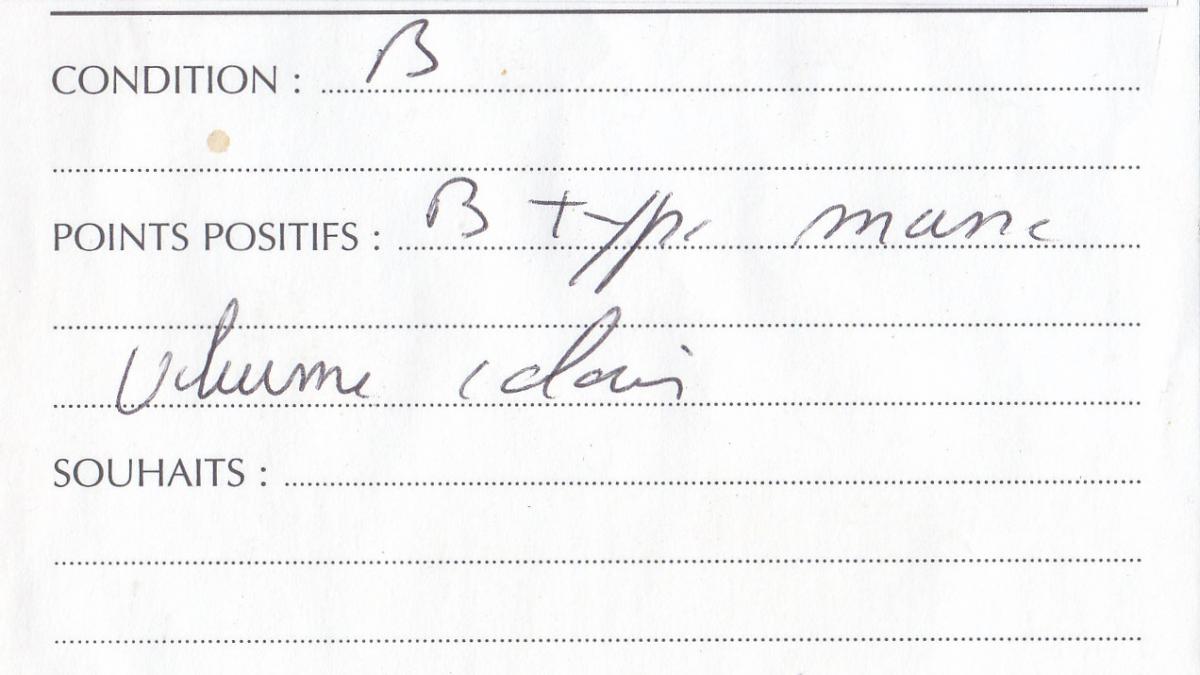 CONDITION : B
POINTS POSITIFS : B type
volume
SOUHAITS :